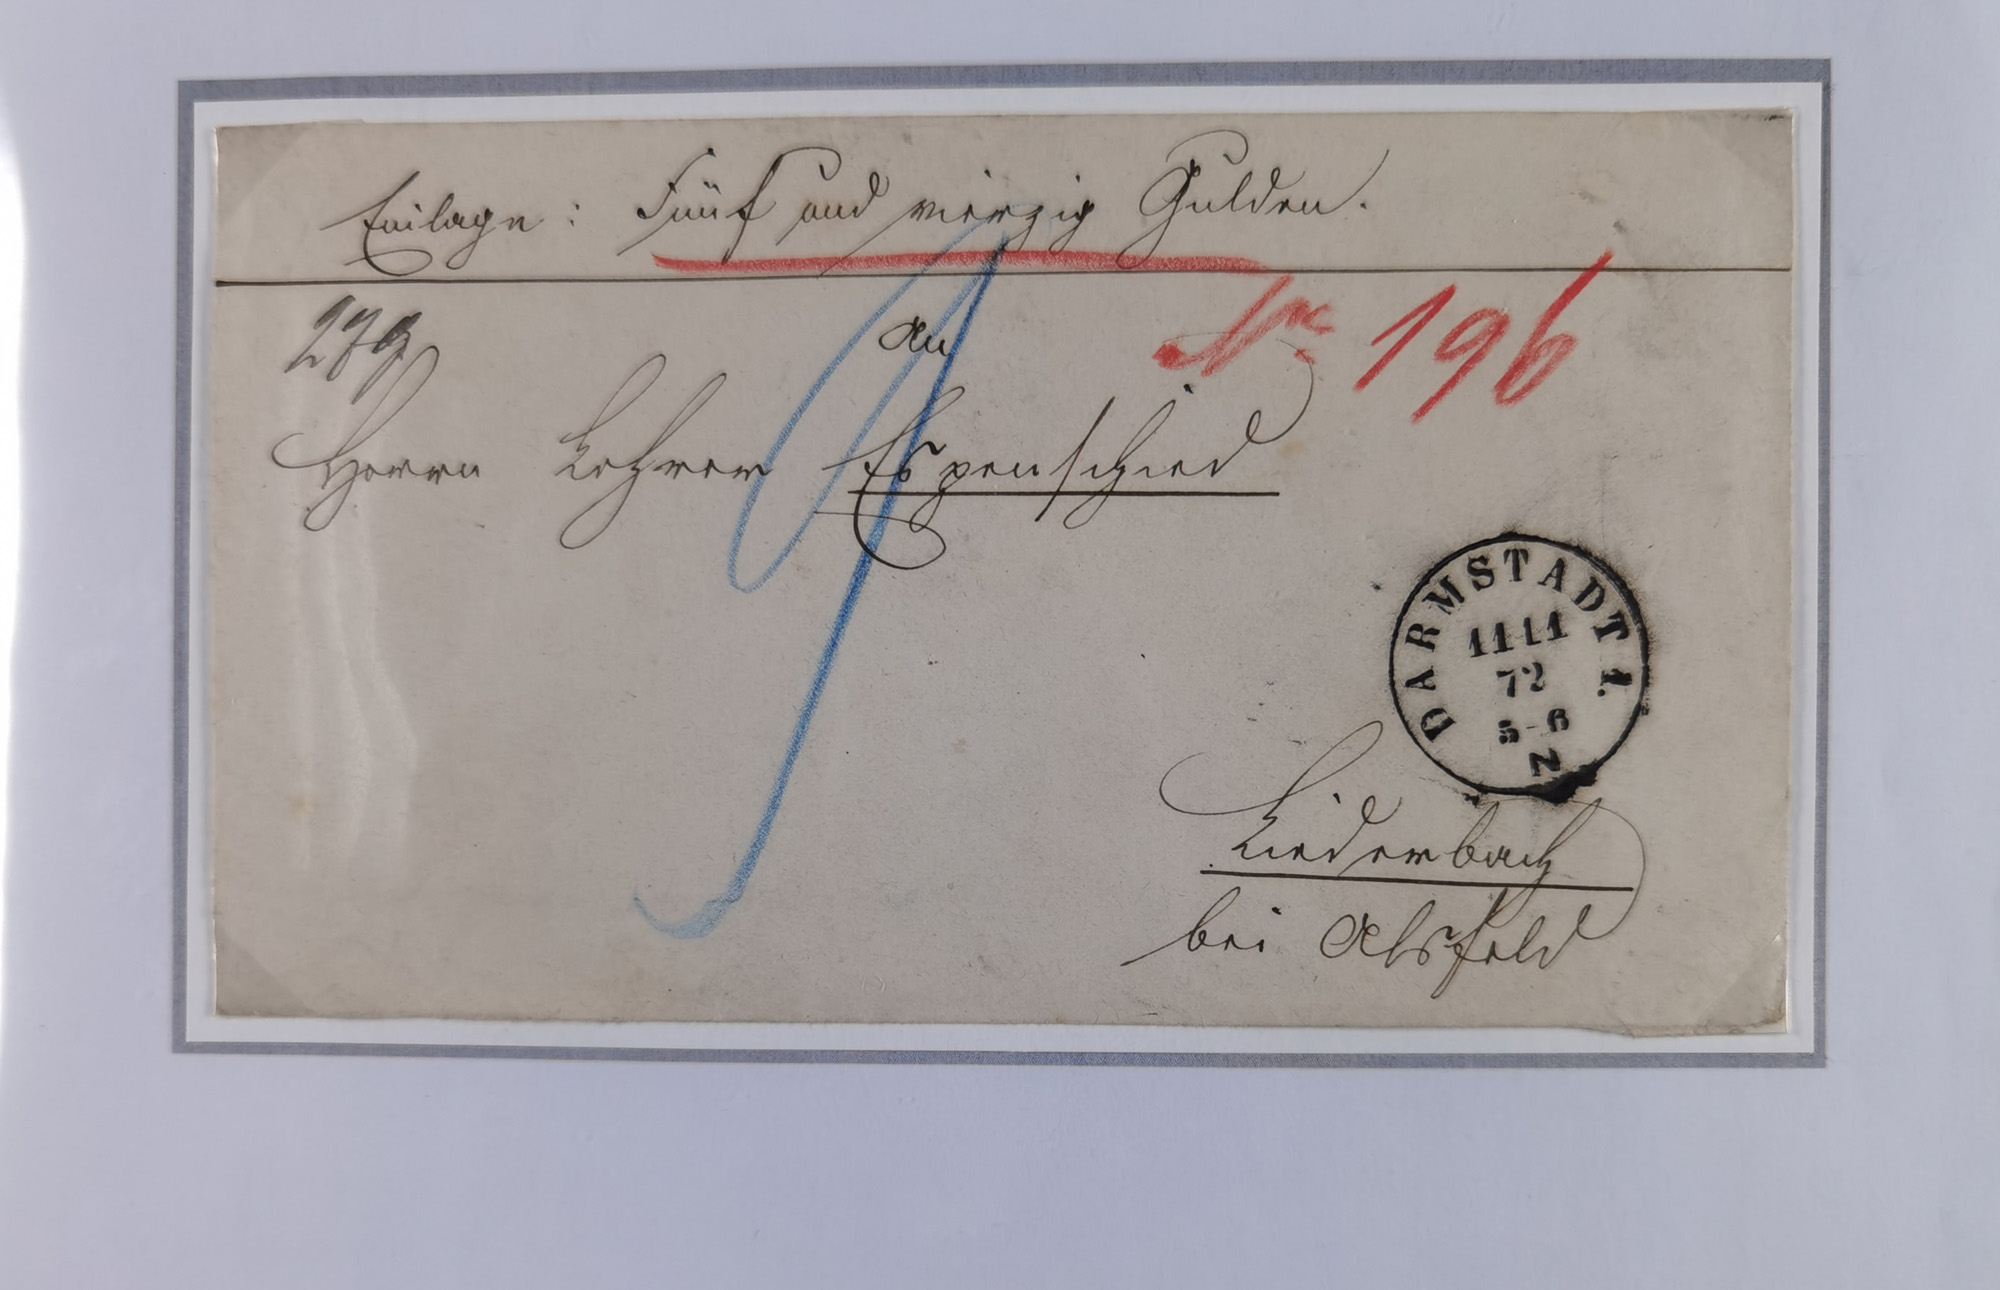 Einlage: Fünf und vierzig Gulden.
An
No 196
Herrn Lehrer Espenschied
DARMSTADT 1.
11 11
72
5-6
N
Liederbach
bei Alsfeld